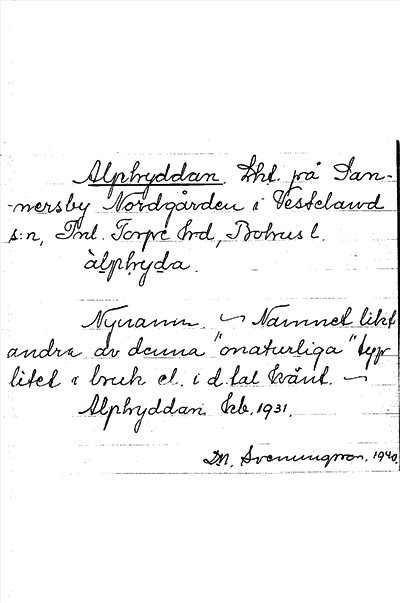 Alphyddan. Lht. på Dan-
-nersby Nordgården i Vesteland
s:n, Inl. Torpe hrd, Bohus l.
àlphyda.
Nynamn. ~ Namnet likt
andra av denna "onaturliga" typ
litet i bruk el. i d. tal känt. ~
Alphyddan kb. 1931.
D. N. Svenungsson. 1940.